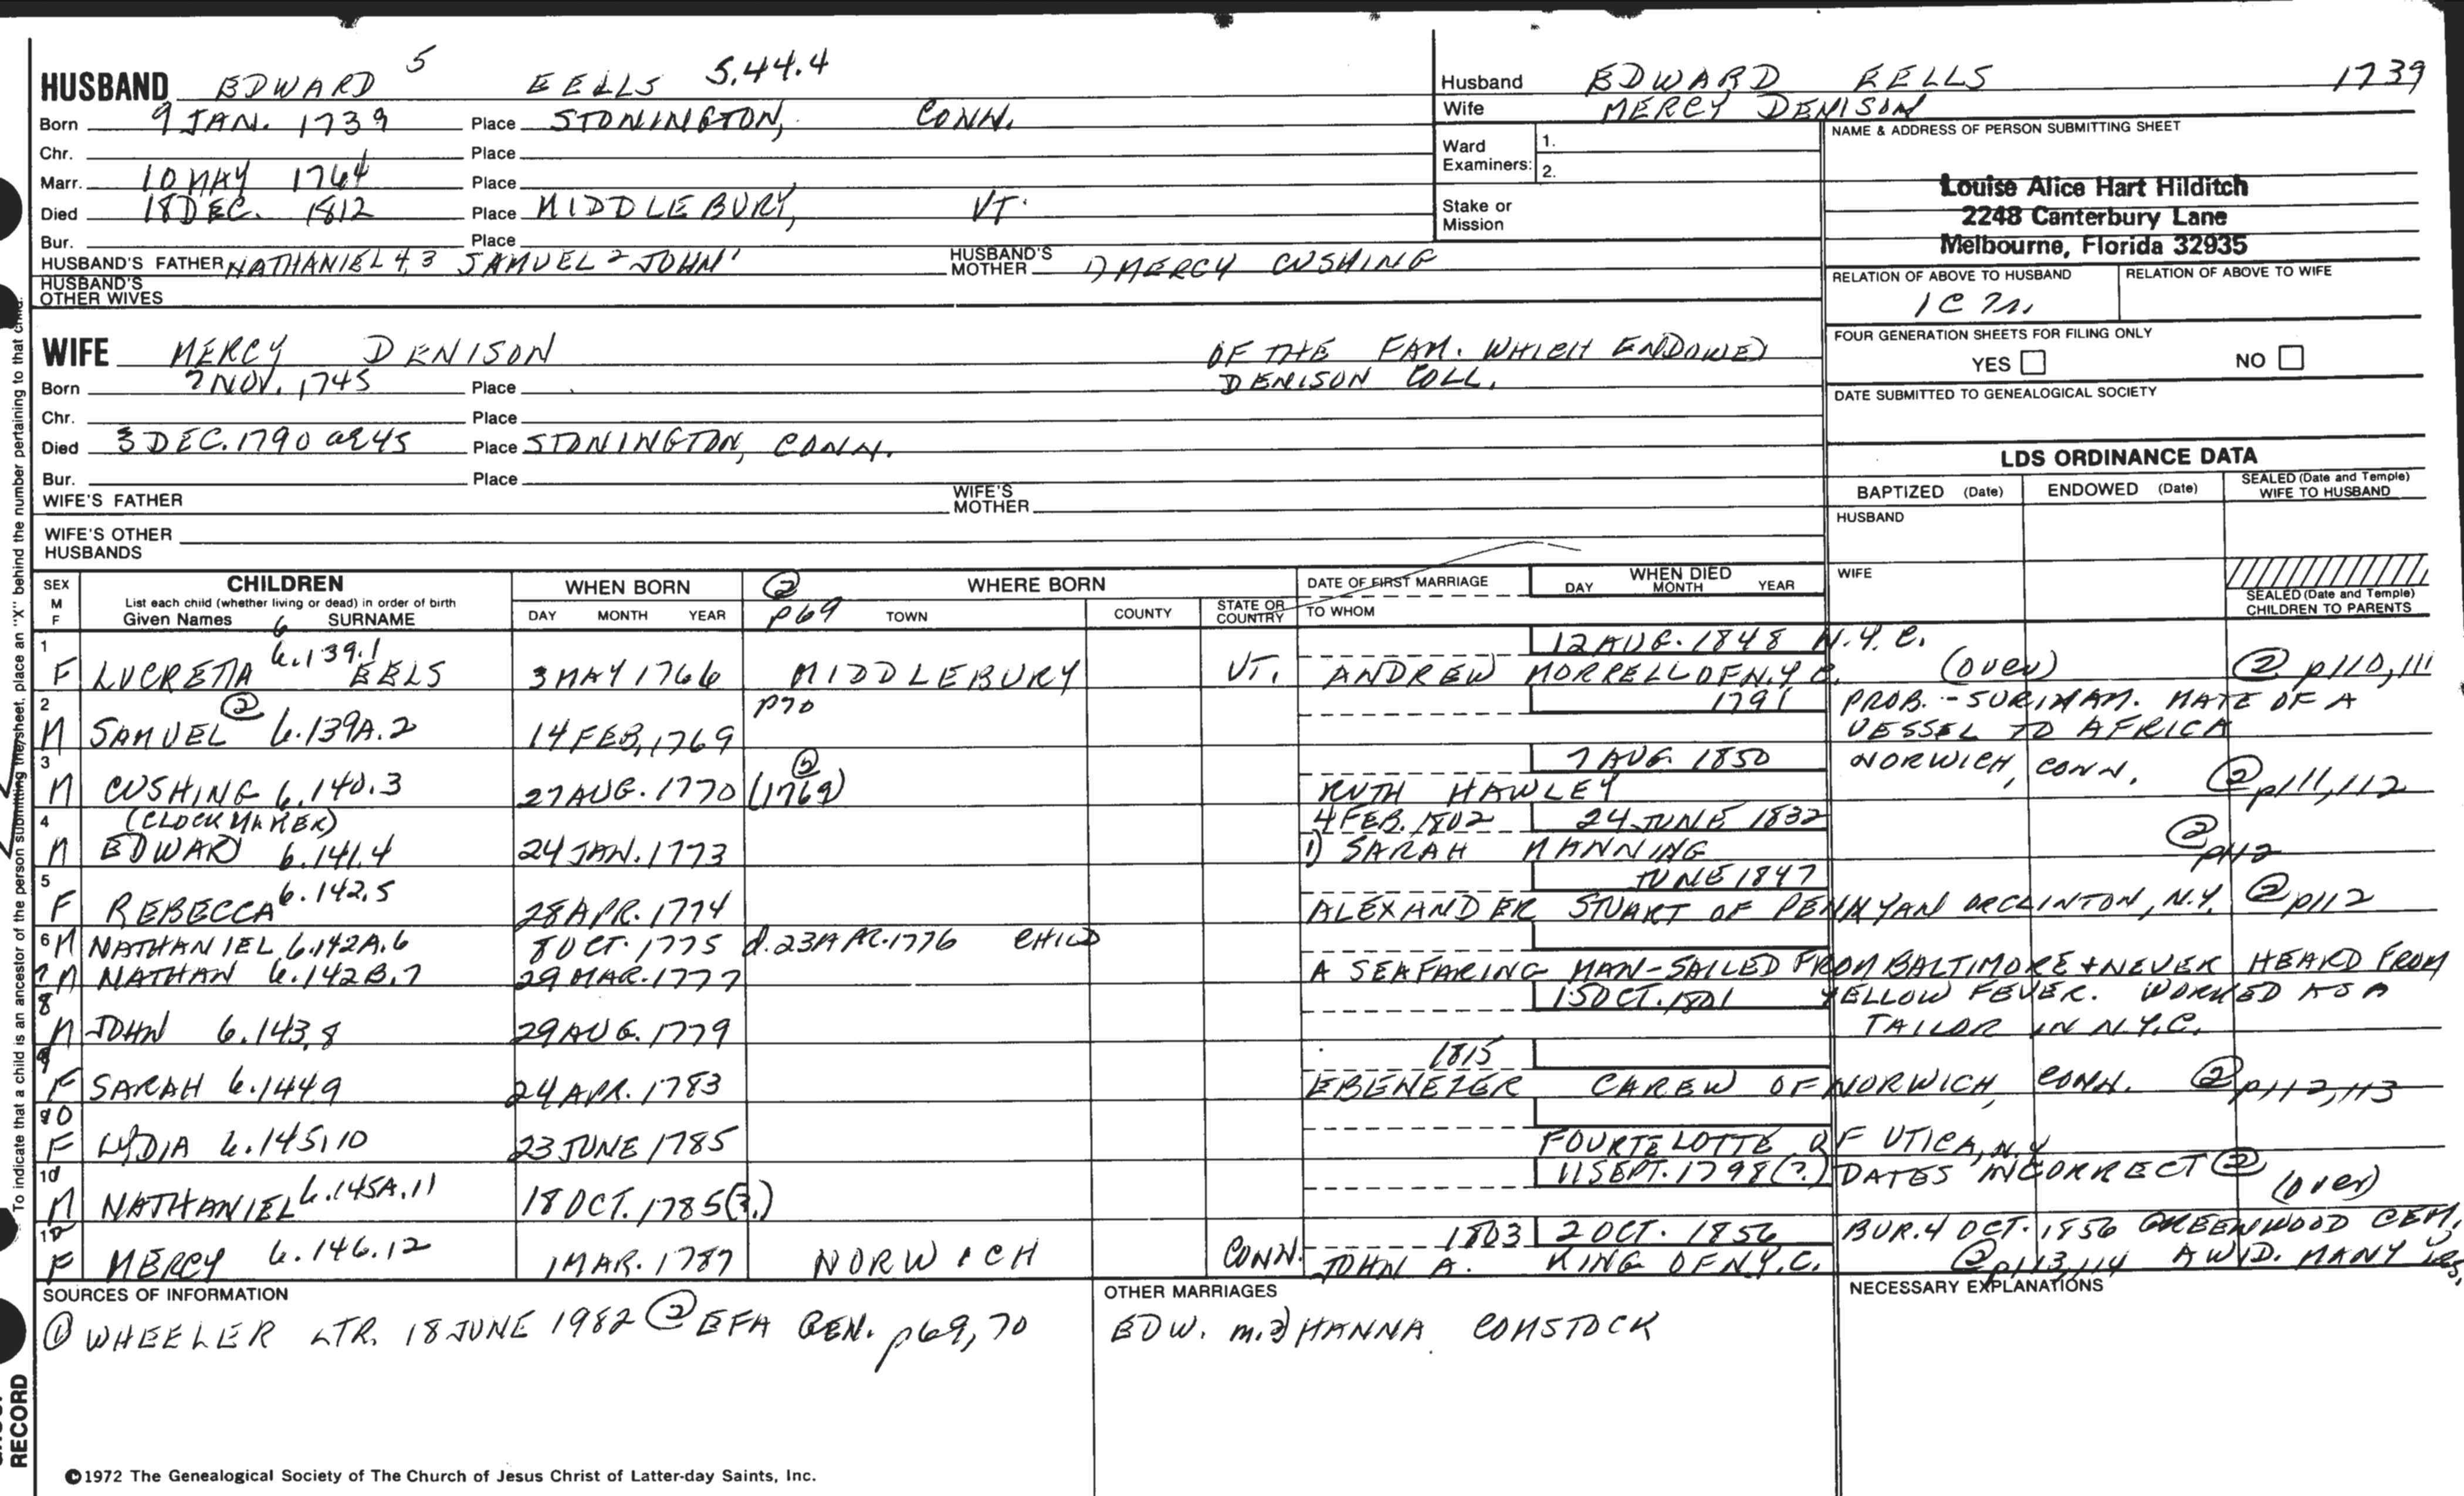 HUSBAND EDWARD 5 EELLS 5.44.4
Born 9 JAN. 1739 Place STONINGTON, CONN.
Chr. Place
Marr. 10 MAY 1764 Place
Died 18 DEC. 1812 Place MIDDLEBURY, VT.
Bur. Place
HUSBAND'S FATHER NATHANIEL 4, 3 SAMUEL 2 JOHN 1 HUSBAND'S MOTHER 1) MERCY CUSHING
HUSBAND'S OTHER WIVES
Husband EDWARD EELLS 1739
Wife MERCY DENISON
Ward Examiners: 1.
2.
Stake or Mission
NAME & ADDRESS OF PERSON SUBMITTING SHEET
Louise Alice Hart Hilditch
2248 Canterbury Lane
Melbourne, Florida 32935
RELATION OF ABOVE TO HUSBAND RELATION OF ABOVE TO WIFE
1C
FOUR GENERATION SHEETS FOR FILING ONLY
YES NO
DATE SUBMITTED TO GENEALOGICAL SOCIETY
WIFE MERCY DENISON OF THE FAM. WHICH ENDOWED
DENISON COLL.
Born 7 NOV. 1745 Place
Chr. Place
Died 3 DEC. 1790 ae 45 Place STONINGTON, CONN.
Bur. Place
WIFE'S FATHER WIFE'S MOTHER
WIFE'S OTHER HUSBANDS
LDS ORDINANCE DATA
BAPTIZED (Date) ENDOWED (Date) SEALED (Date and Temple) WIFE TO HUSBAND
HUSBAND
WIFE
SEALED (Date and Temple) CHILDREN TO PARENTS
SEX M F CHILDREN List each child (whether living or dead) in order of birth Given Names 6 SURNAME
WHEN BORN DAY MONTH YEAR
② p69 WHERE BORN TOWN COUNTY STATE OR COUNTRY
DATE OF FIRST MARRIAGE TO WHOM
WHEN DIED DAY MONTH YEAR
1 12 AUG. 1848 N.Y.C.
F LUCRETIA 6.139.1 EELS 3 MAY 1766 MIDDLEBURY VT. ANDREW MORRELL OF N.Y.C. (over) ② p110, 111
2 p70 1791 PROB. - SURINAM. MATE OF A
M SAMUEL ② 6.139A.2 14 FEB, 1769 VESSEL TO AFRICA
3 7 AUG 1850 NORWICH, CONN.
M CUSHING 6.140.3 27 AUG. 1770 (1769) ② RUTH HAWLEY ② p111, 112
4 (CLOCK MAKER) 4 FEB. 1802 24 JUNE 1832
M EDWARD 6.141.4 24 JAN. 1773 1) SARAH MANNING ② p112
5 JUNE 1847
F REBECCA 6.142.5 28 APR. 1774 ALEXANDER STUART OF PENN YAN OR CLINTON, N.Y. ② p112
6 M NATHANIEL 6.142A.6 8 OCT. 1775 d. 23 MAR. 1776 CHILD
7 M NATHAN 6.142B.7 29 MAR. 1777 A SEAFARING MAN - SAILED FROM BALTIMORE + NEVER HEARD FROM
8 15 OCT. 1801 YELLOW FEVER. WORKED AS A
M JOHN 6.143.8 29 AUG. 1779 TAILOR IN N.Y.C.
9 1815
F SARAH 6.144.9 24 APR. 1783 EBENEZER CAREW OF NORWICH, CONN. ② p112, 113
10
F LYDIA 6.145.10 23 JUNE 1785 FOURTELOTTE OF UTICA, N.Y
11 SEPT. 1798 (?) DATES INCORRECT ②
M NATHANIEL 6.145A.11 18 OCT. 1785 (?) (over)
1803 2 OCT. 1856 BUR. 4 OCT. 1856 GREENWOOD CEM.
F MERCY 6.146.12 1 MAR. 1787 NORWICH CONN. JOHN A. KING OF N.Y.C. ② p113, 114 A WID. MANY yrs.
SOURCES OF INFORMATION
① WHEELER LTR. 18 JUNE 1982 ② EFA GEN. p69, 70
OTHER MARRIAGES
EDW. m. 2) HANNA COMSTOCK
NECESSARY EXPLANATIONS
©1972 The Genealogical Society of The Church of Jesus Christ of Latter-day Saints, Inc.
To indicate that a child is an ancestor of the person submitting the sheet, place an "X" behind the number pertaining to that child.
RECORD